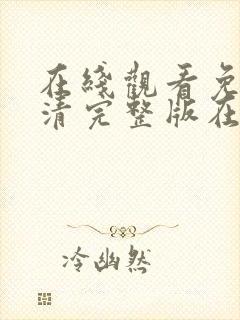 在綫觀看免
清完整版在
冷幽然